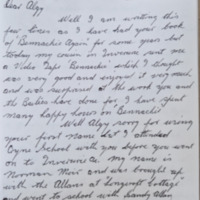 Dear Algy
Well I am writing this
few lines as I have had your book
of Bennachie Again for some years but
today my cousin in Inverurie sent me
a Video Tape Bennachie which I thought
was very good and enjoyed it very much
and was surprised at the work you and
the Bailies have done for, I have spent
many happy hours on Bennachie
Well Algy sorry for using
your first name but I attended
Oyne School with you before you went
on to Inverurie, my name is
Norman Moir and was brought up
with the Allans at Longcroft Cottage
and went to school with Sandy Allan